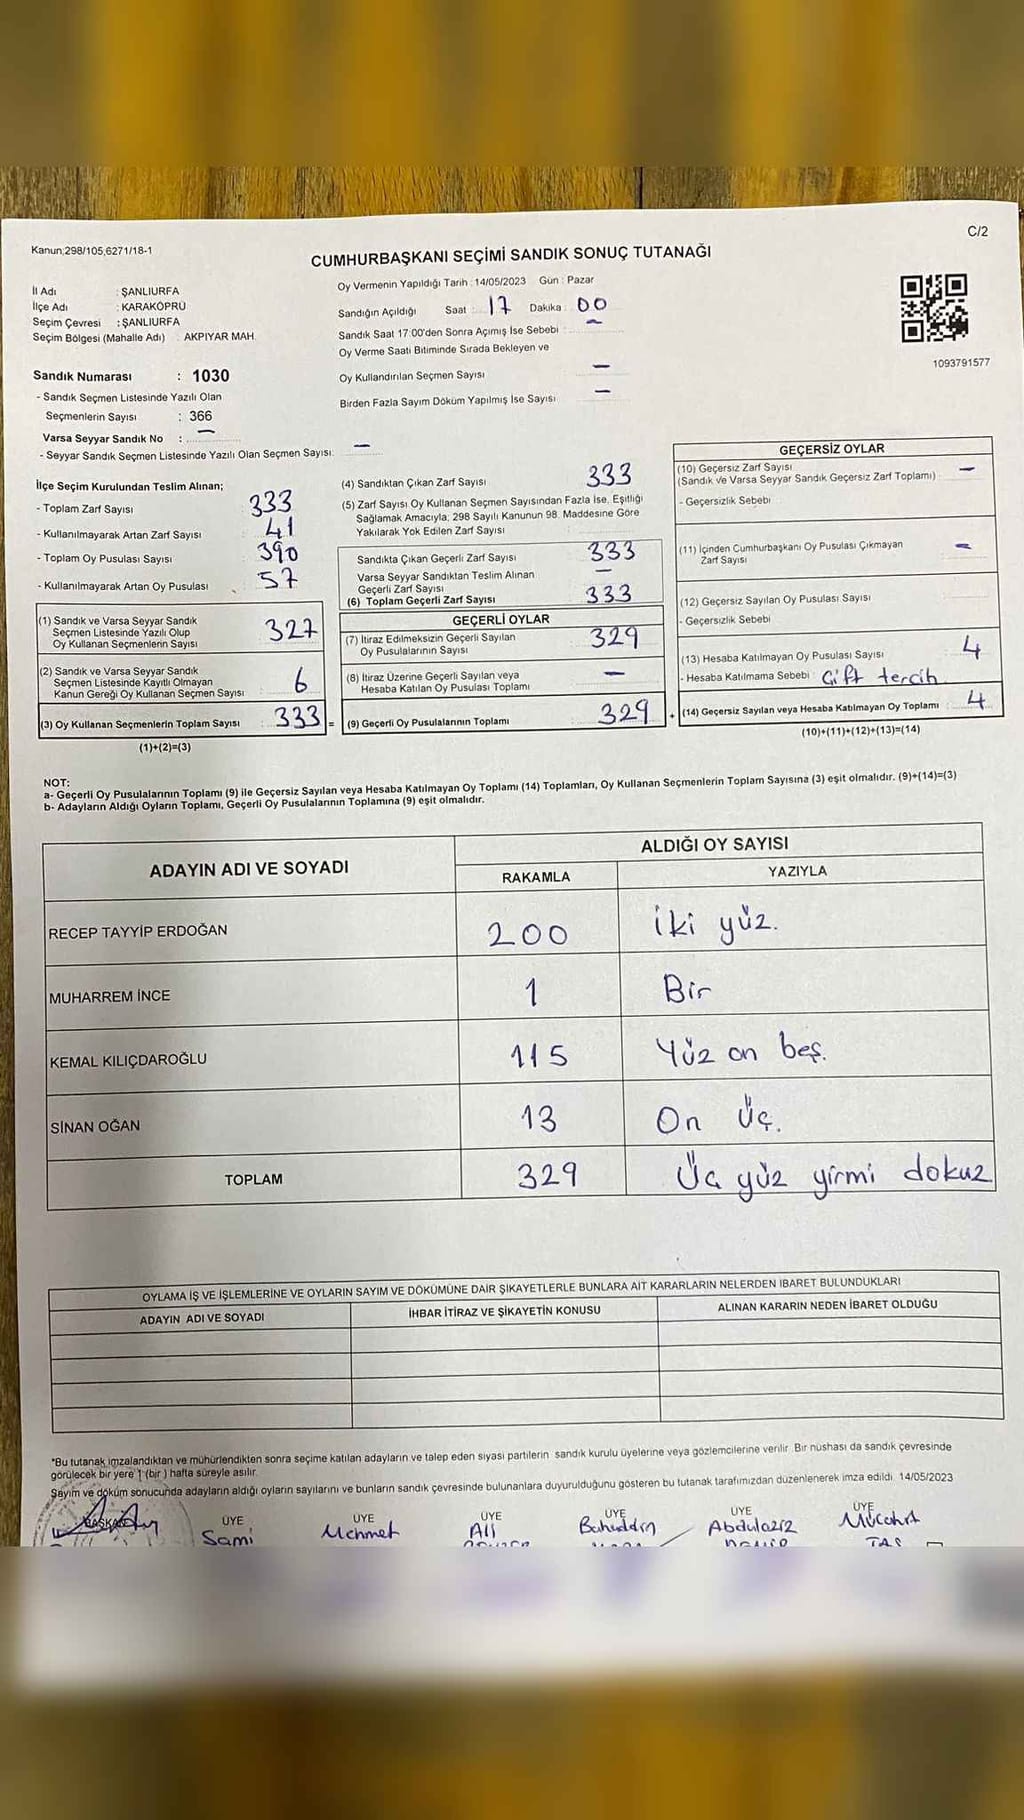 C/2
Kanun;298/105,6271/18-1
CUMHURBAŞKANI SEÇİMİ SANDIK SONUÇ TUTANAĞI
İl Adı : ŞANLIURFA
İlçe Adı : KARAKÖPRÜ
Seçim Çevresi : ŞANLIURFA
Seçim Bölgesi (Mahalle Adı) : AKPIYAR MAH.
Oy Vermenin Yapıldığı Tarih : 14/05/2023 Gün : Pazar
Sandığın Açıldığı Saat : 17 Dakika : 00
Sandık Saat 17:00'den Sonra Açımış İse Sebebi : -
Oy Verme Saati Bitiminde Sırada Bekleyen ve
Oy Kullandırılan Seçmen Sayısı -
Birden Fazla Sayım Döküm Yapılmış İse Sayısı -
1093791577
Sandık Numarası : 1030
- Sandık Seçmen Listesinde Yazılı Olan
Seçmenlerin Sayısı : 366
Varsa Seyyar Sandık No : -
- Seyyar Sandık Seçmen Listesinde Yazılı Olan Seçmen Sayısı: -
İlçe Seçim Kurulundan Teslim Alınan;
- Toplam Zarf Sayısı : 333
- Kullanılmayarak Artan Zarf Sayısı : 41
- Toplam Oy Pusulası Sayısı : 390
- Kullanılmayarak Artan Oy Pusulası : 57
(1) Sandık ve Varsa Seyyar Sandık
Seçmen Listesinde Yazılı Olup
Oy Kullanan Seçmenlerin Sayısı : 327
(2) Sandık ve Varsa Seyyar Sandık
Seçmen Listesinde Kayıtlı Olmayan
Kanun Gereği Oy Kullanan Seçmen Sayısı : 6
(3) Oy Kullanan Seçmenlerin Toplam Sayısı : 333 =
(1)+(2)=(3)
(4) Sandıktan Çıkan Zarf Sayısı : 333
(5) Zarf Sayısı Oy Kullanan Seçmen Sayısından Fazla İse, Eşitliği
Sağlamak Amacıyla, 298 Sayılı Kanunun 98. Maddesine Göre
Yakılarak Yok Edilen Zarf Sayısı :
Sandıkta Çıkan Geçerli Zarf Sayısı : 333
Varsa Seyyar Sandıktan Teslim Alınan
Geçerli Zarf Sayısı : -
(6) Toplam Geçerli Zarf Sayısı : 333
GEÇERLİ OYLAR
(7) İtiraz Edilmeksizin Geçerli Sayılan
Oy Pusulalarının Sayısı : 329
(8) İtiraz Üzerine Geçerli Sayılan veya
Hesaba Katılan Oy Pusulası Toplamı : -
(9) Geçerli Oy Pusulalarının Toplamı : 329 +
GEÇERSİZ OYLAR
(10) Geçersiz Zarf Sayısı
(Sandık ve Varsa Seyyar Sandık Geçersiz Zarf Toplamı) : -
- Geçersizlik Sebebi
(11) İçinden Cumhurbaşkanı Oy Pusulası Çıkmayan
Zarf Sayısı : -
(12) Geçersiz Sayılan Oy Pusulası Sayısı
- Geçersizlik Sebebi
(13) Hesaba Katılmayan Oy Pusulası Sayısı : 4
- Hesaba Katılmama Sebebi : Çift tercih
(14) Geçersiz Sayılan veya Hesaba Katılmayan Oy Toplamı : 4
(10)+(11)+(12)+(13)=(14)
NOT:
a- Geçerli Oy Pusulalarının Toplamı (9) ile Geçersiz Sayılan veya Hesaba Katılmayan Oy Toplamı (14) Toplamları, Oy Kullanan Seçmenlerin Toplam Sayısına (3) eşit olmalıdır. (9)+(14)=(3)
b- Adayların Aldığı Oyların Toplamı, Geçerli Oy Pusulalarının Toplamına (9) eşit olmalıdır.
ADAYIN ADI VE SOYADI
ALDIĞI OY SAYISI
RAKAMLA YAZIYLA
RECEP TAYYİP ERDOĞAN 200 İki yüz.
MUHARREM İNCE 1 Bir
KEMAL KILIÇDAROĞLU 115 Yüz on beş.
SİNAN OĞAN 13 On Üç.
TOPLAM 329 Üç yüz yirmi dokuz
OYLAMA İŞ VE İŞLEMLERİNE VE OYLARIN SAYIM VE DÖKÜMÜNE DAİR ŞİKAYETLERLE BUNLARA AİT KARARLARIN NELERDEN İBARET BULUNDUKLARI
ADAYIN ADI VE SOYADI İHBAR İTİRAZ VE ŞİKAYETİN KONUSU ALINAN KARARIN NEDEN İBARET OLDUĞU
*Bu tutanak imzalandıktan ve mühürlendikten sonra seçime katılan adayların ve talep eden siyasi partilerin sandık kurulu üyelerine veya gözlemcilerine verilir. Bir nüshası da sandık çevresinde
görülecek bir yere 1 (bir ) hafta süreyle asılır.
Sayım ve döküm sonucunda adayların aldığı oyların sayılarını ve bunların sandık çevresinde bulunanlara duyurulduğunu gösteren bu tutanak tarafımızdan düzenlenerek imza edildi. 14/05/2023
BAŞKAN ÜYE ÜYE ÜYE ÜYE ÜYE ÜYE
Sami Mehmet Ali Bahaddin Abdulaziz Mücahit
TAŞ